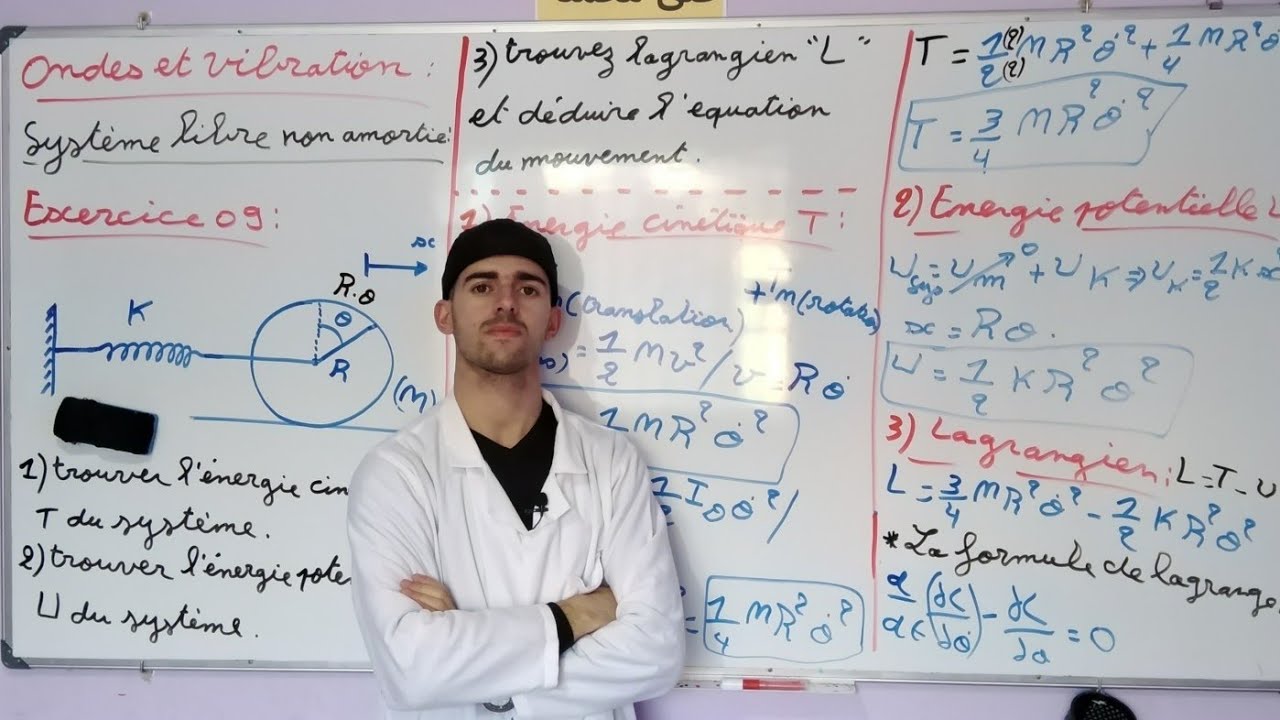 Ondes et vibration :
Système libre non amortie:
Exercice 09 :
x
R.θ
K
θ
R
(m)
1) trouver l'énergie cin
T du système.
2) trouver l'énergie pote
U du système.
3) trouvez lagrangien "L"
et déduire l'équation
du mouvement.
1) Energie cinétique T :
(translation)
+Tm(rotatio
= 1/2 m v² / v = Rθ̇
1 m R² θ̇²
1 I₀ θ̇² /
= 1/4 m R² θ̇²
T = 1(2)/2(2) m R² θ̇² + 1/4 m R² θ̇
T = 3/4 m R² θ̇²
2) Energie potentielle
U sys = Um ↗0 + U K ⇒ UK = 1/2 K x
x = Rθ.
U = 1/2 K R² θ²
3) Lagrangien : L = T - U
L = 3/4 m R² θ̇² - 1/2 K R² θ²
* La formule de lagrange
d/dt (∂L/∂θ̇) - ∂L/∂θ = 0